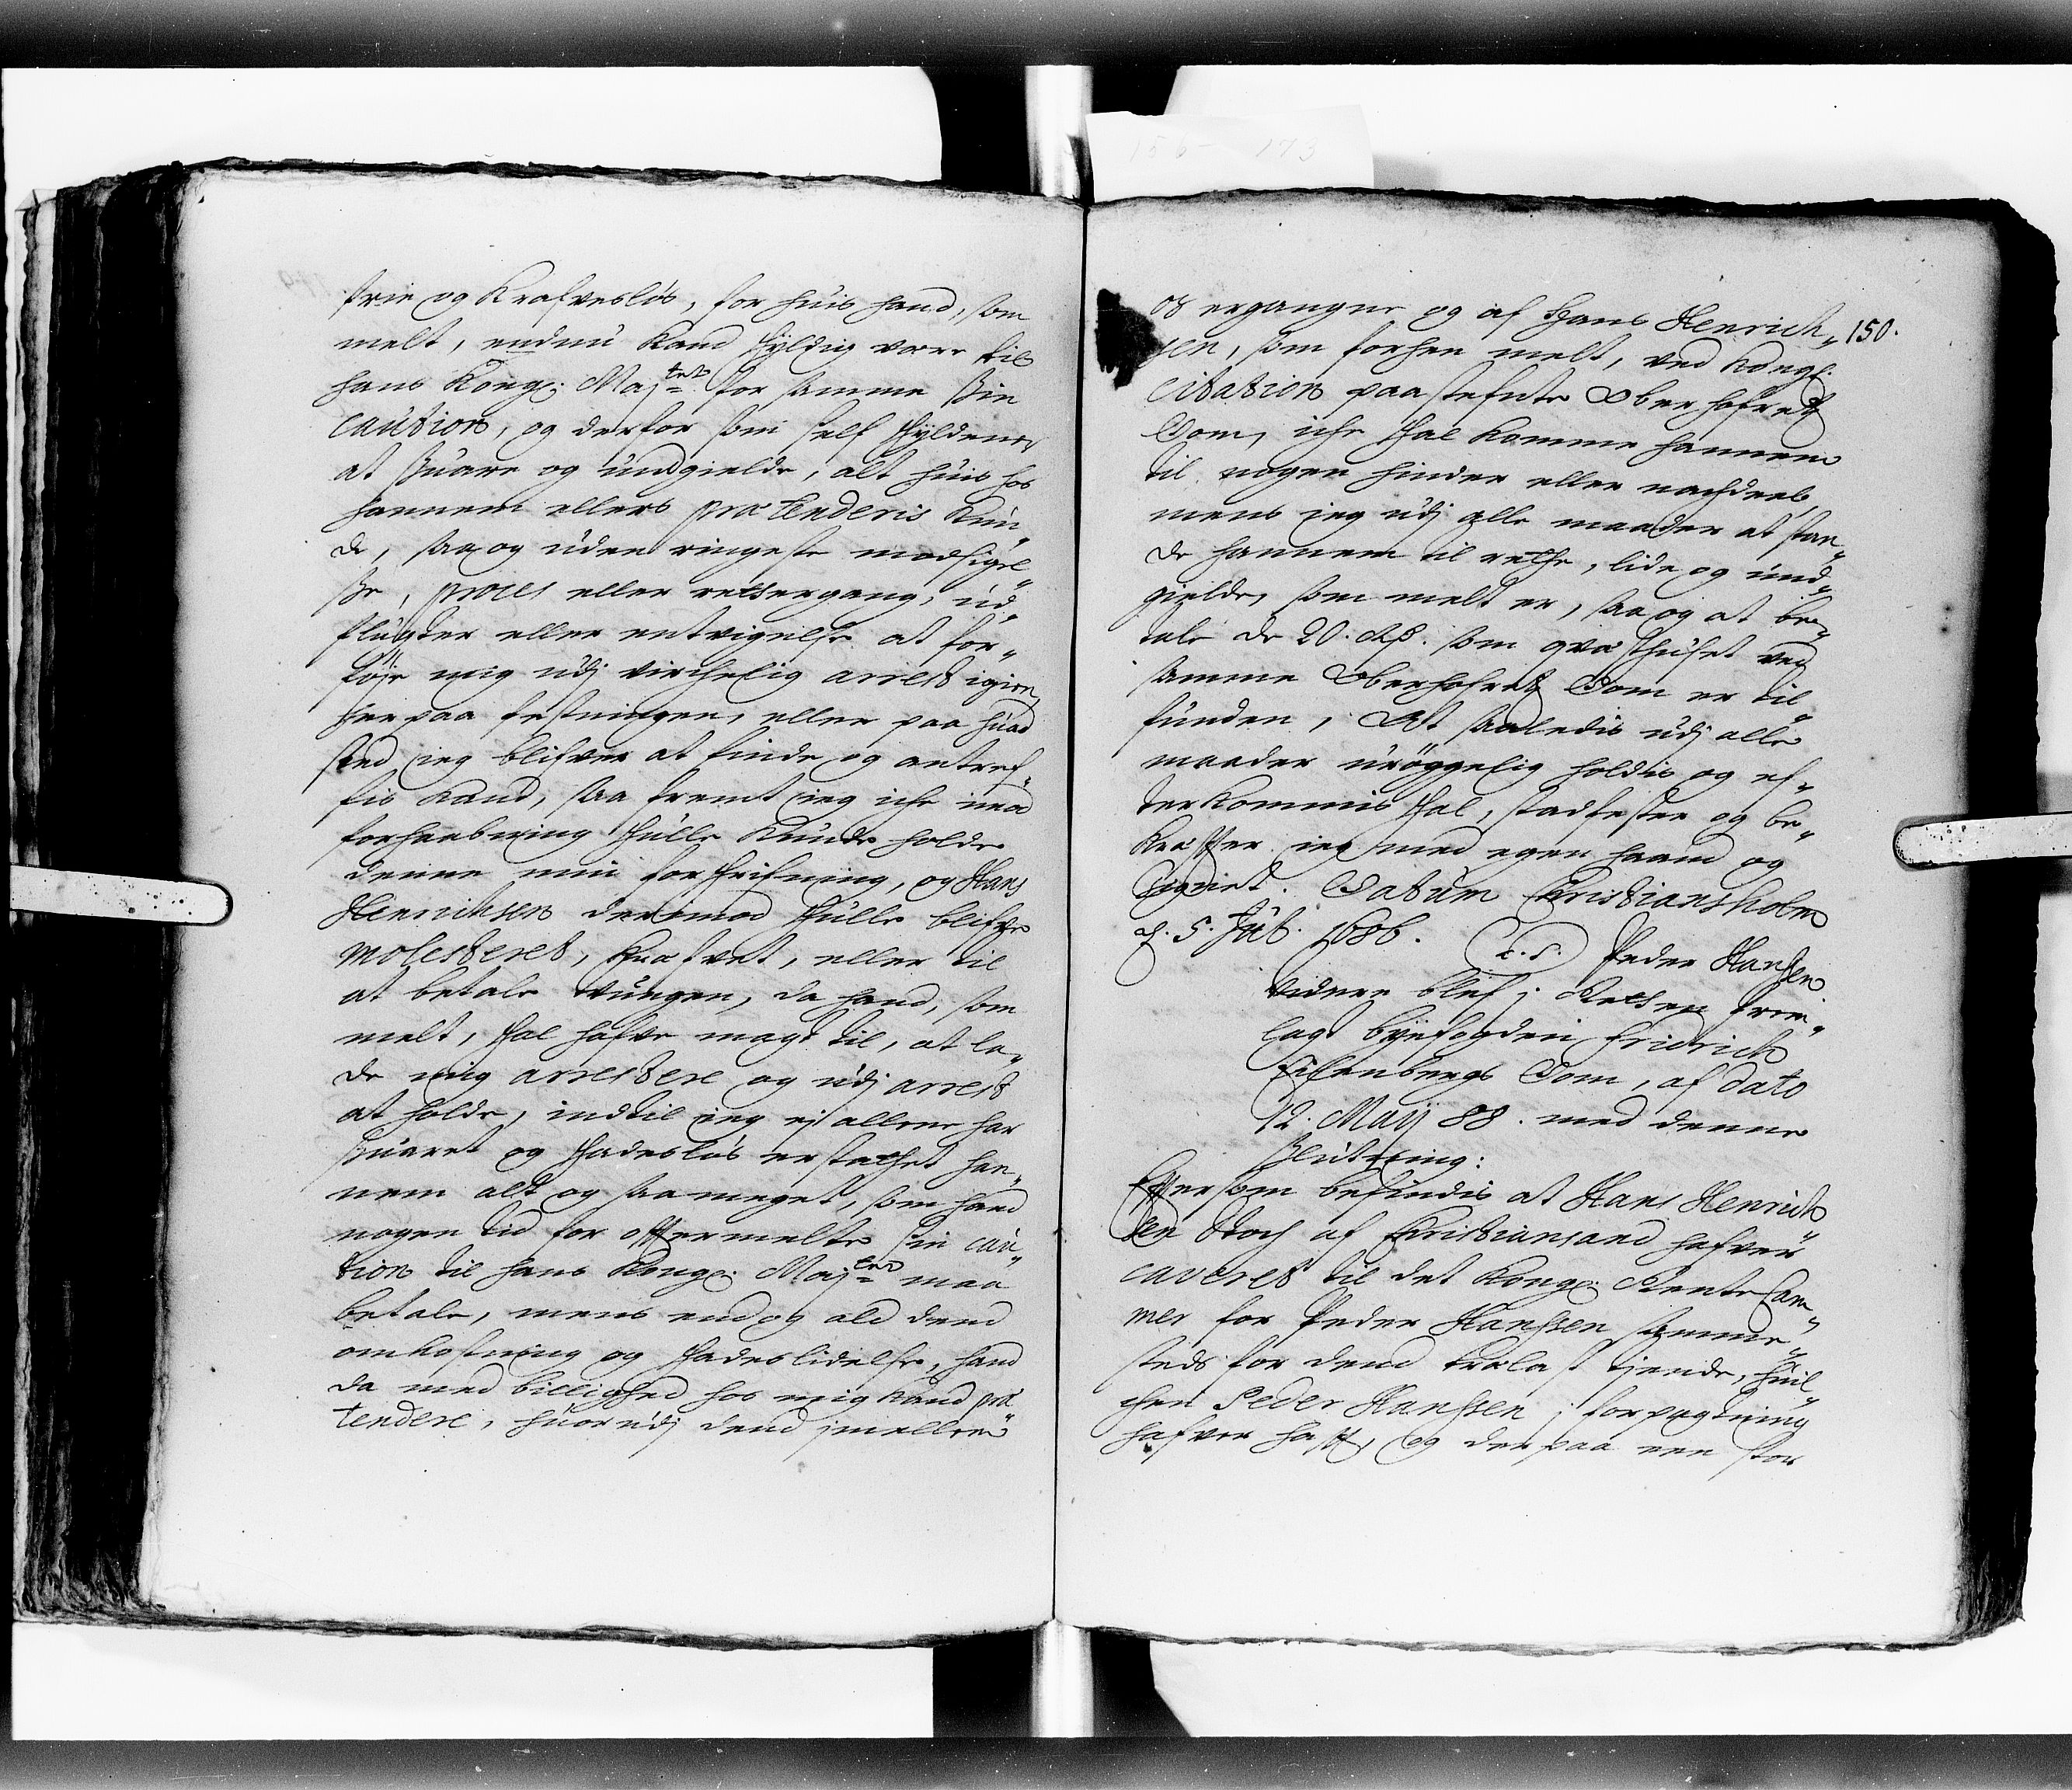 frie og Krafvesløs, for huis hand, som
melt, endnu kand skyldig vere til
hans Kongl: Maj:tet for samme sin
caution, og derfor som self skyldener
at suare og undgielde, alt huis hos
hannem ellers prætenderis kun„
de, saa og uden ringeste modsigel„
se, proces eller rettergang, ud„
flugter eller entvigelse at for„
føje mig udj virchelig arrest igien
her paa festningen, eller paa huad
sted jeg blifver at finde og antref„
fis kand, saa fremt jeg iche imod
forhaabning skulle kunde holde
denne min forskrifning, og Hans
Henrichsen derimod skulle blifve
molesteret, krafvet, eller til
at betale tvungen, da hand, som
melt, skal hafve magt til, at la„
de mig arrestere og udj arrest
at holde, indtil jeg ej allene har
suaret og skadesløs erstattet han„
nem alt og saa meget, som hand
nogen tid for oftermelte sin cau„
tion til hans Kongl: Maj:tet maa
betale, mens end og ald dend
omkostning og skadeslidelse, hand
da med billighed hos mig kand præ„
tendere, huorudj dend imellem
os ergangne og af Hans Henrich„ 150.
sen, som forhen melt, ved Kongl:
Citation paastefnte Oberhofretz
Dom, iche skal komme hannem
til nogen hinder eller nachdeel,
mens jeg udj alle maader at stan„
de hannem til rette, lide og und„
gielde, som melt er, saa og at be„
tale de 20. Rd. som qvæsthuset ved
samme Oberhofretz Dom er til„
funden, At saaledis udj alle
maader urøggelig holdis og ef„
terkommis skal, stadfester og be„
kræfter jeg med egen haand og
Signet. Datum Christiansholm
d. 5. Feb. 1686. (L.S.) Peder Hanssen
Videre blef i Retten frem„
lagt byefogden Fridrich
Eilenbergs Dom, af dato
12. Maij 88. med denne
slutning:
Eftersom befindis at Hans Henrich„
sen Stoch af Christiansand hafver
caveret til det Kongl: Rente Cam„
mer for Peder Hanssen samme„
steds for dend trælast tjende, huil„
chen Peder Hanssen i forpagtning
hafver haft, og derpaa een stor